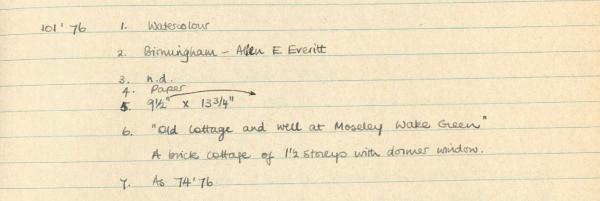 101'76 1. Watercolour
2. Birmingham - Allen E Everitt
3. n.d.
4. Paper
5. 9½" x 13 3/4"
6. "Old Cottage and well at Moseley Wake Green"
A brick cottage of 1½ storeys with dormer window.
7. As 74'76